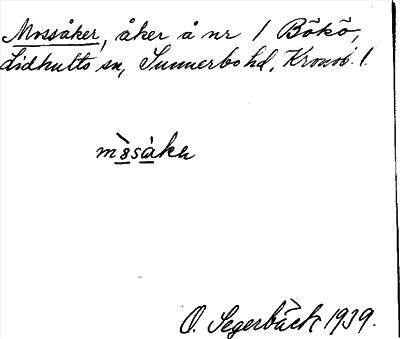 Mossåker, åker å nr 1 Bökö,
Lidhults sn, Sunnerbo hd, Kronob. l.
O. Segerbäck 1939.